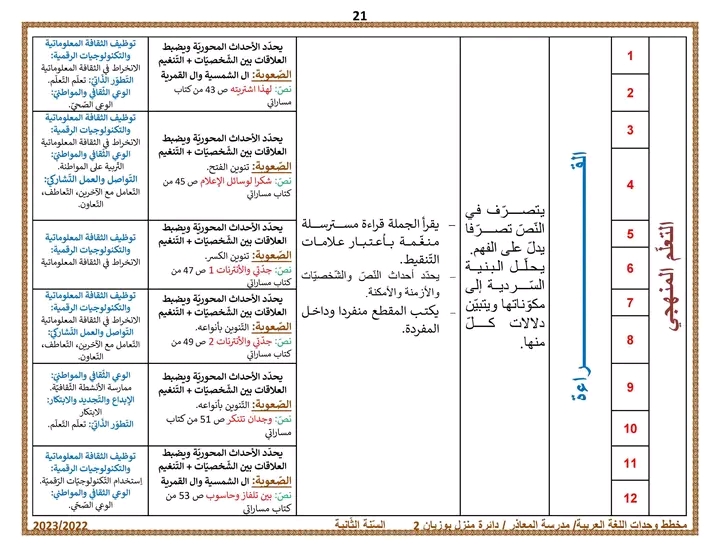 21
التعلّم المنهجي
1
2
3
4
5
6
7
8
9
10
11
12
القــــراءة
يتصـــرّف في
النّصّ تصــرّفا
يدلّ على الفهم.
يحلّــل البنية
السّــردية إلى
مكوّناتها ويتبيّن
دلالات كــلّ
منها.
– يقرأ الجملة قراءة مسترسلة
منغّمة بـأعتبـار علامـات
التّنقيط.
– يحدّد أحداث النّصّ والشّخصيّات
والأزمنة والأمكنة.
– يكتب المقطع منفردا وداخـل
المفردة.
يحدّد الأحداث المحوريّة ويضبط
العلاقات بين الشّخصيّات + التّنغيم
الصّعوبة: ال الشمسية وال القمرية
نصّ: لهذا اشتريته ص 43 من كتاب
مساراتي
توظيف الثقافة المعلوماتية
والتكنولوجيات الرقمية:
الانخراط في الثقافة المعلوماتية
التّطوّر الذّاتيّ: تعلّم التّعلّم.
الوعي الثّقافي والمواطنيّ:
الوعي الصّحيّ.
يحدّد الأحداث المحوريّة ويضبط
العلاقات بين الشّخصيّات + التّنغيم
الصّعوبة: تنوين الفتح.
نصّ: شكرا لوسائل الإعلام ص 45 من
كتاب مساراتي
توظيف الثقافة المعلوماتية
والتكنولوجيات الرقمية:
الانخراط في الثقافة المعلوماتية
الوعي الثّقافي والمواطنيّ:
التّربية على المواطنة.
التّواصل والعمل التّشاركيّ:
التّعامل مع الآخرين، التّعاطف،
التّعاون.
يحدّد الأحداث المحوريّة ويضبط
العلاقات بين الشّخصيّات + التّنغيم
الصّعوبة: تنوين الكسر.
نصّ: جدّتي والأنترنات 1 ص 47 من
كتاب مساراتي
توظيف الثقافة المعلوماتية
والتكنولوجيات الرقمية:
الانخراط في الثقافة المعلوماتية
يحدّد الأحداث المحوريّة ويضبط
العلاقات بين الشّخصيّات + التّنغيم
الصّعوبة: التّنوين بأنواعه.
نصّ: جدّتي والأنترنات 2 ص 49 من
كتاب مساراتي
توظيف الثقافة المعلوماتية
والتكنولوجيات الرقمية:
الانخراط في الثقافة المعلوماتية
التّواصل والعمل التّشاركيّ:
التّعامل مع الآخرين، التّعاطف،
التّعاون.
يحدّد الأحداث المحوريّة ويضبط
العلاقات بين الشّخصيّات + التّنغيم
الصّعوبة: التّنوين بأنواعه.
نصّ: وجدان تتنكر ص 51 من كتاب
مساراتي
الوعي الثّقافي والمواطنيّ:
ممارسة الأنشطة الثّقافيّة.
الإبداع والتّجديد والابتكار:
الابتكار
التّطوّر الذّاتيّ: تعلّم التّعلّم.
يحدّد الأحداث المحوريّة ويضبط
العلاقات بين الشّخصيّات + التّنغيم
الصّعوبة: ال الشمسية وال القمرية
نصّ: بين تلفاز وحاسوب ص 53 من
كتاب مساراتي
توظيف الثقافة المعلوماتية
والتكنولوجيات الرقمية:
إستخدام التّكنولوجيّات الرّقميّة.
الوعي الثّقافي والمواطنيّ:
الوعي الصّحّي.
مخطط وحدات اللغة العربية/ مدرسة المعاذر / دائرة منزل بوزيان 2 السّنة الثّانية 2023/2022